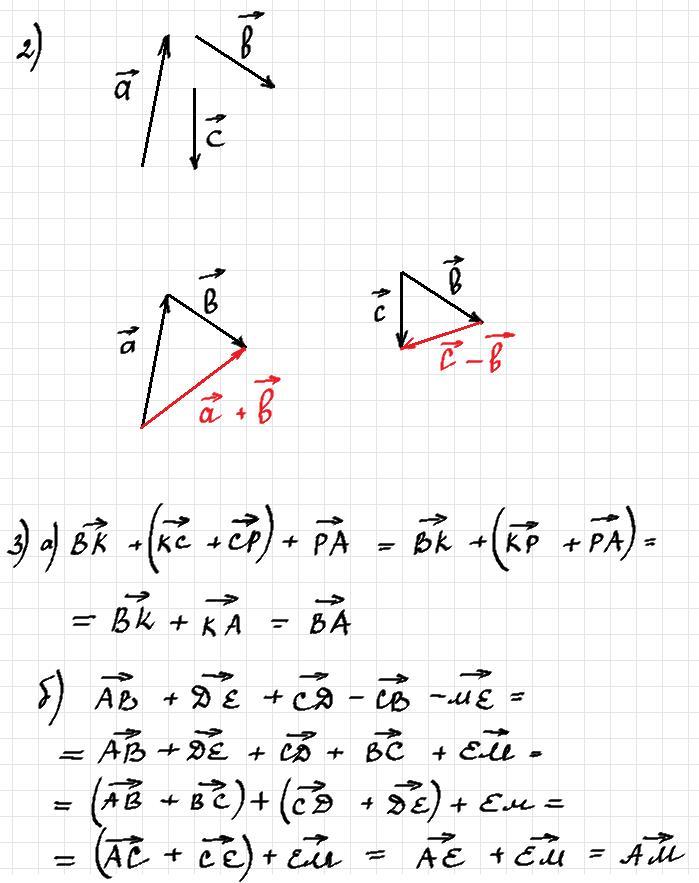 2)
a⃗ b⃗
c⃗
a⃗ b⃗
a⃗ + b⃗
c⃗ b⃗
c⃗ - b⃗
3) а) B͞K⃗ + (K͞C⃗ + C͞P⃗) + P͞A⃗ = B͞K⃗ + (K͞P⃗ + P͞A⃗) =
= B͞K⃗ + K͞A⃗ = B͞A⃗
б) A͞B⃗ + D͞E⃗ + C͞D⃗ - C͞B⃗ - M͞E⃗ =
= A͞B⃗ + D͞E⃗ + C͞D⃗ + B͞C⃗ + E͞M⃗ =
= (A͞B⃗ + B͞C⃗) + (C͞D⃗ + D͞E⃗) + EM =
= (A͞C⃗ + C͞E⃗) + E͞M⃗ = A͞E⃗ + E͞M⃗ = A͞M⃗